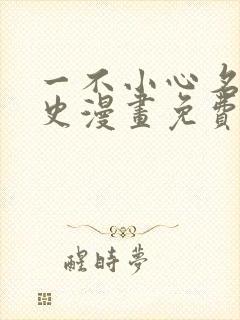 一不小心名
史漫畫免費
醒時夢